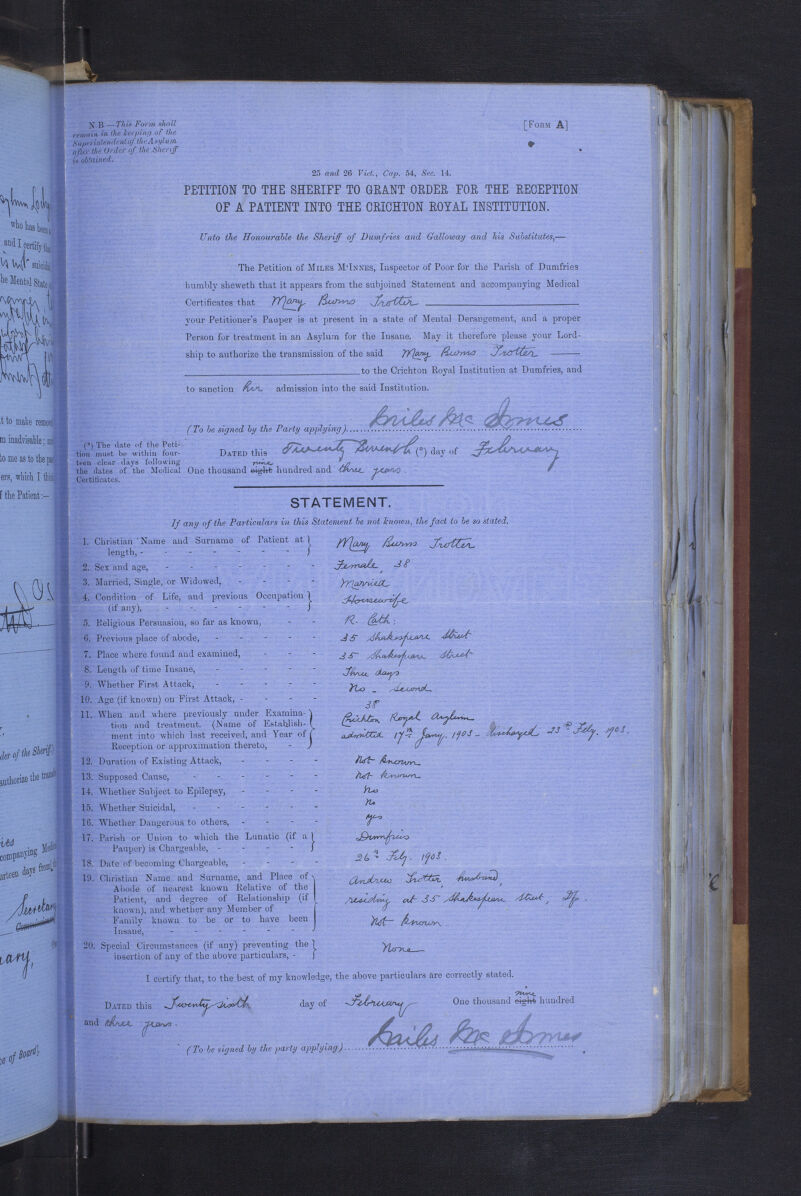 N.B.—This Form shall
remain in the keeping of the
Superintendent of the Asylum
after the Order of the Sheriff
is obtained.
[FORM A]
25 and 26 Vict., Cap. 54, Sec. 14.
PETITION TO THE SHERIFF TO GRANT ORDER FOR THE RECEPTION
OF A PATIENT INTO THE CRICHTON ROYAL INSTITUTION.
Unto the Honourable the Sheriff of Dumfries and Galloway and his Substitutes,—
The Petition of MILES M'INNES, Inspector of Poor for the Parish of Dumfries
humbly sheweth that it appears from the subjoined Statement and accompanying Medical
Certificates that Mary Burns Trotter
your Petitioner's Pauper is at present in a state of Mental Derangement, and a proper
Person for treatment in an Asylum for the Insane. May it therefore please your Lord-
ship to authorize the transmission of the said Mary Burns Trotter
to the Crichton Royal Institution at Dumfries, and
to sanction her admission into the said Institution.
(To be signed by the Party applying) Miles Mc Innes
(*) The date of the Peti-
tion must be within four-
teen clear days following
the dates of the Medical
Certificates.
DATED this Twenty Seventh (*) day of February
One thousand eight nine hundred and three years.
STATEMENT.
If any of the Particulars in this Statement be not known, the fact to be so stated.
1. Christian Name and Surname of Patient at length, - Mary Burns Trotter
2. Sex and age, - Female, 38
3. Married, Single, or Widowed, - Married
4. Condition of Life, and previous Occupation (if any), - Housewife
5. Religious Persuasion, so far as known, - R. Cath:
6. Previous place of abode, - 35 Shakespeare Street
7. Place where found and examined, - 35 Shakespeare Street
8. Length of time Insane, - Three days
9. Whether First Attack, - No - second
10. Age (if known) on First Attack, - 38
11. When and where previously under Examina-
tion and treatment. (Name of Establish-
ment into which last received, and Year of
Reception or approximation thereto, -
Crichton Royal Asylum
admitted 17th Jany. 1903 - discharged 23rd Feby. 1903.
12. Duration of Existing Attack, - Not known
13. Supposed Cause, - Not known
14. Whether Subject to Epilepsy, - No
15. Whether Suicidal, - No
16. Whether Dangerous to others, - Yes
17. Parish or Union to which the Lunatic (if a Pauper) is Chargeable, - Dumfries
18. Date of becoming Chargeable, - 26th Feby. 1903.
19. Christian Name and Surname, and Place of
Abode of nearest known Relative of the
Patient, and degree of Relationship (if
known), and whether any Member of
Family known to be or to have been
Insane, -
Andrew Trotter, husband,
residing at 35 Shakespeare Street, D/s.
Not known.
20. Special Circumstances (if any) preventing the
insertion of any of the above particulars, - None
I certify that, to the best of my knowledge, the above particulars are correctly stated.
DATED this Twenty sixth day of February One thousand eight nine hundred
and three years.
(To be signed by the party applying) Miles Mc Innes